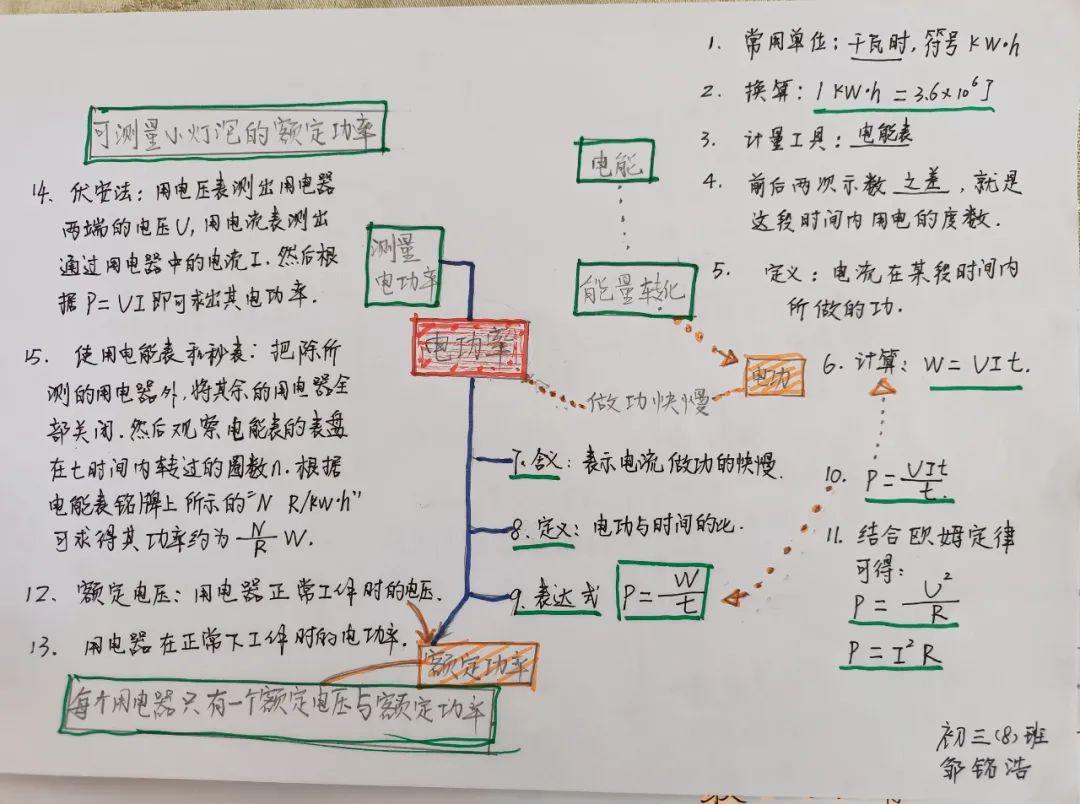 1. 常用单位：千瓦时，符号 KW·h
2. 换算：1 KW·h = 3.6×10⁶J
3. 计量工具：电能表
4. 前后两次示数之差，就是
这段时间内用电的度数.
5. 定义：电流在某段时间内
所做的功.
6. 计算：W = UIt.
可测量小灯泡的额定功率
14. 伏安法：用电压表测出用电器
两端的电压U，用电流表测出
通过用电器中的电流I. 然后根
据P=UI即可求出其电功率.
15. 使用电能表和秒表：把除所
测的用电器外，将其余的用电器全
部关闭. 然后观察电能表的表盘
在t时间内转过的圈数n. 根据
电能表铭牌上所示的"N R/KW·h"
可求得其功率约为 N/R W.
12. 额定电压：用电器正常工作时的电压.
13. 用电器在正常下工作时的电功率.
每个用电器只有一个额定电压与额定功率
测量
电功率
电功率
电能
能量转化
电功
做功快慢
7. 含义：表示电流做功的快慢.
8. 定义：电功与时间的比.
9. 表达式 P = W/t
额定功率
10. P = UIt/t.
11. 结合欧姆定律
可得：
P = U²/R
P = I²R
初三(8)班
邹铭浩